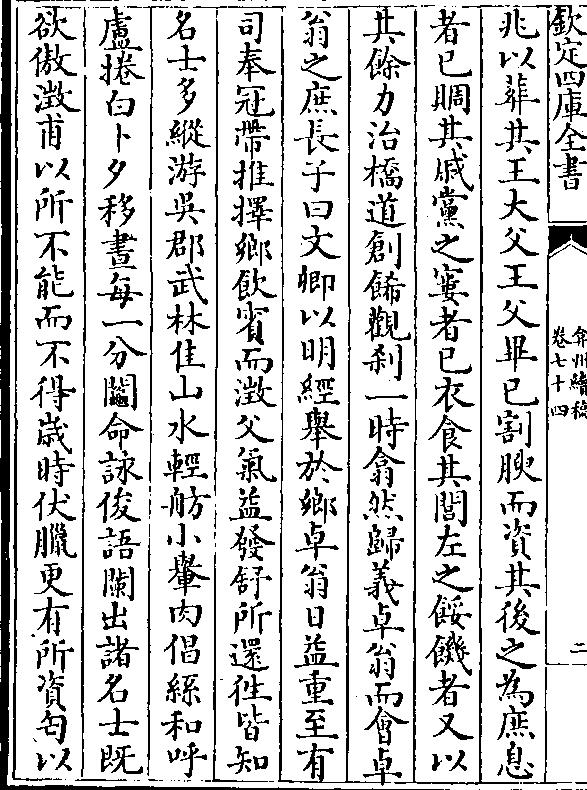 欽定四庫全書
弇州續稿
卷七十四
二
兆以葬其王大父王父畢已割腴而資其後之為庶息
者已賙其戚黨之窶者已衣食其閭左之餒饑者又以
其餘力治橋道創餙觀刹一時翕然歸義卓翁而會卓
翁之庶長子曰文卿以明經舉於鄉卓翁日益重至有
司奉冠帶推擇鄉飲賓而澂父氣益發舒所還徃皆知
名士多縱游吳郡武林佳山水輕舫小轝肉倡絲和呼
盧捲白卜夕移晝每一分鬮命詠俊語闌出諸名士既
欲傲澂甫以所不能而不得歲時伏臘更有所資匄以